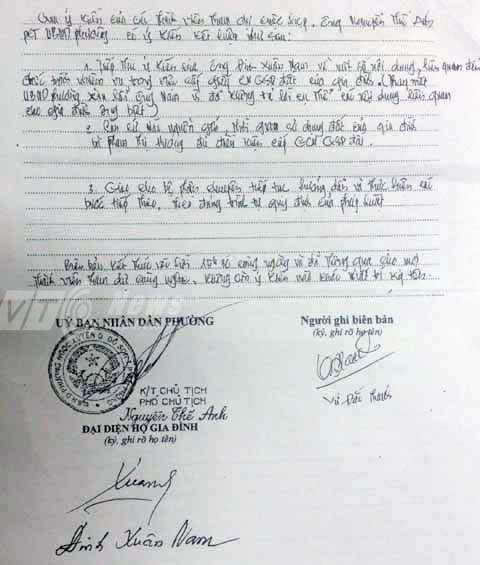 Qua ý kiến của các thành viên tham dự cuộc họp. Ông Nguyễn Thế Anh
PCT UBND phường có ý kiến kết luận như sau:
1. Tiếp thu ý kiến của Ông Đinh Xuân Nam về một số nội dung liên quan đến
trong việc cấp giấy CNQSD đất của gia đình. (Thay mặt
UBND phường xin lỗi Ông Nam vì đã không trả lời cụ thể các nội dung liên quan
cho gia đình ông biết)
2. Căn cứ vào nguồn gốc, quá trình sử dụng đất của gia đình
bà Phạm Thị Hương đủ điều kiện cấp GCN QSD đất.
3. Giao cho bộ phận chuyên môn tiếp tục hướng dẫn và thực hiện các
bước tiếp theo, theo đúng trình tự quy định của pháp luật
Biên bản kết thúc vào hồi 10h cùng ngày và đã thông qua cho mọi
thành viên tham dự cùng nghe. Không còn ý kiến nào khác nhất trí ký tên.
VTC News
ỦY BAN NHÂN DÂN PHƯỜNG
Người ghi biên bản
(ký, ghi rõ họ tên)
K/T CHỦ TỊCH
PHÓ CHỦ TỊCH
Nguyễn Thế Anh
Vũ Đức
ĐẠI DIỆN HỘ GIA ĐÌNH
(ký, ghi rõ họ tên)
Đinh Xuân Nam